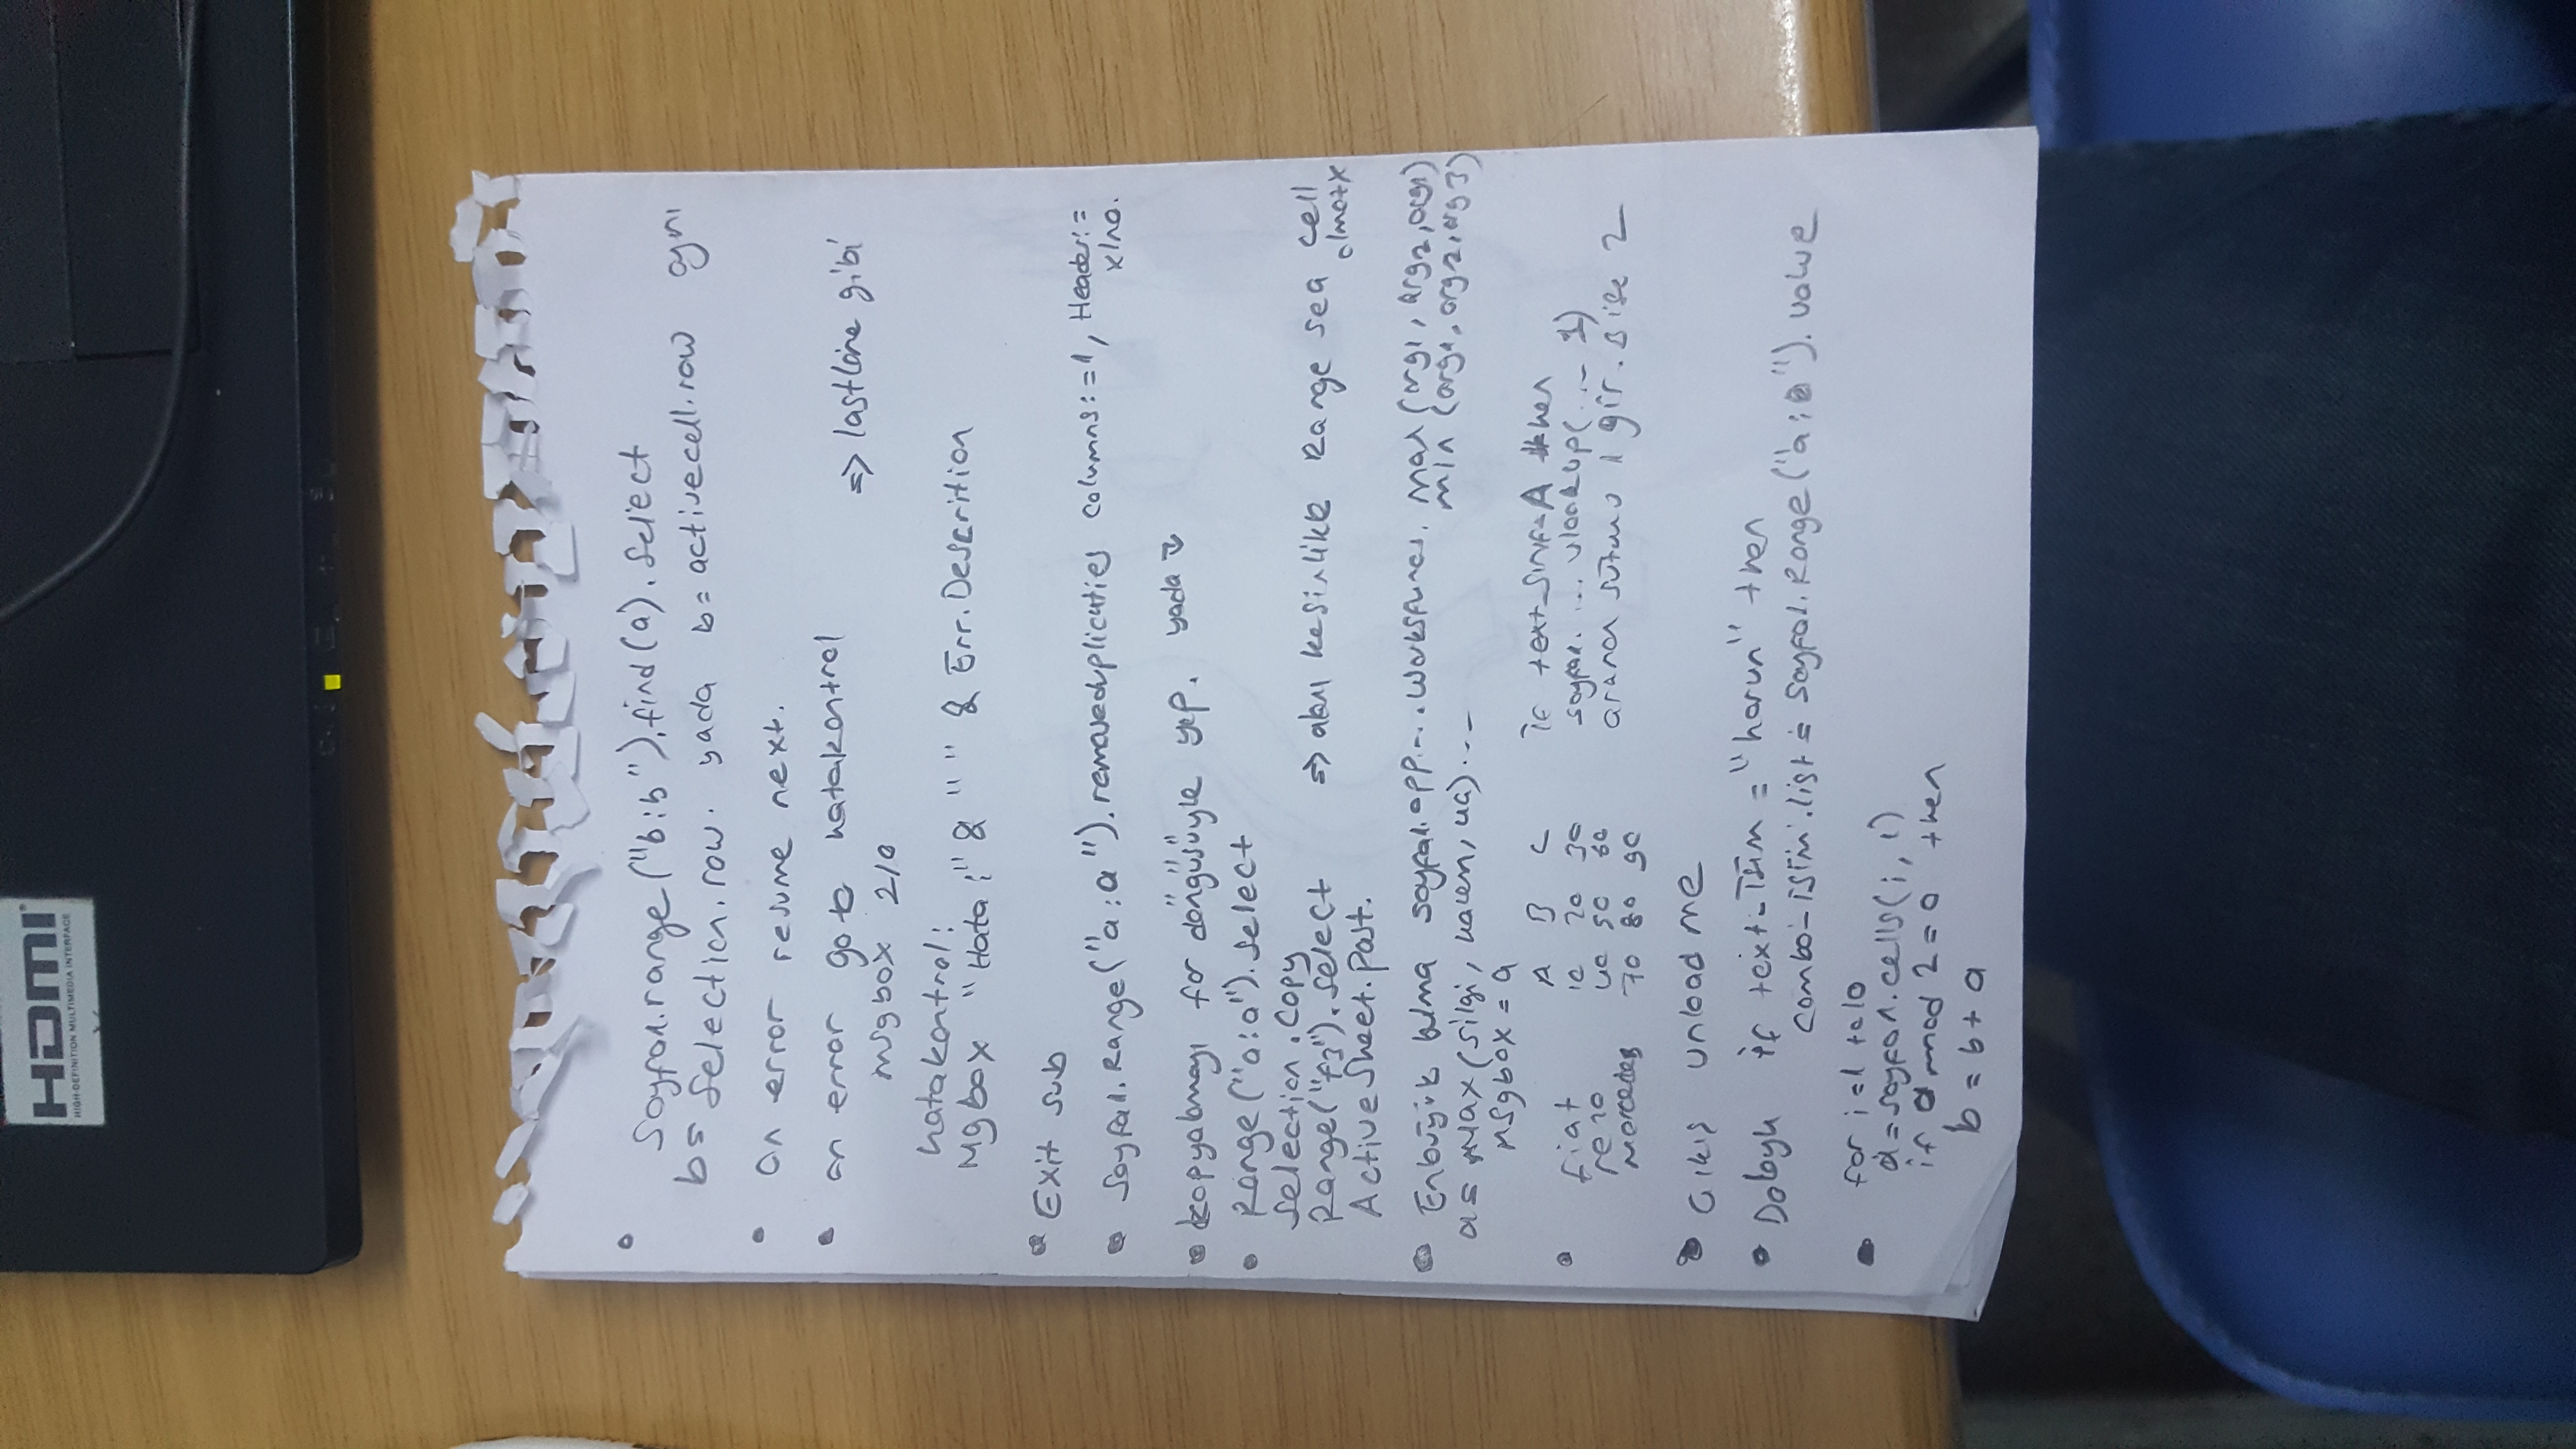 HDMI
HIGH-DEFINITION MULTIMEDIA INTERFACE
Sayfa1.range("b:b").find(a).Select
b= Selection.row. yada b= activecell.row aynı
on error resume next.
on error go to hatakontrol
=> lastline gibi
msgbox 2/0
hatakontrol:
Mgbox "Hata:" & " " & Err.Descrition
Exit sub
Sayfa1.Range("a:a").removeduplicaties columns:=1, Header:=
xlno.
kopyalmayı for döngüsüyle yap. yada
Range("a:a").Select
Selection.Copy
Range("f3").Select => kesinlikle Range sea cell
olmaz
ActiveSheet.Past.
Enbüyük bulma sayfa1.app... Worksfunct. max (arg1, arg2, arg1)
min (arg1, arg2, arg3)
a= Max(silgi, kalem, uc)...
msgbox = a
A B C if text_Sınıf=A then
fiat 10 20 30 sayfa1. ... vlookup(... 1)
reno 40 50 60 aranan sütuna 1 gir. B ise 2
mercedes 70 80 90
Çıkış unload me
Dolaylı if text_İsim = "harun" then
combo_İsim.list = Sayfa1.Range("a:a").value
for i=1 to 10
a=sayfa1.cells(i,1)
if a mod 2=0 then
b = b+ a